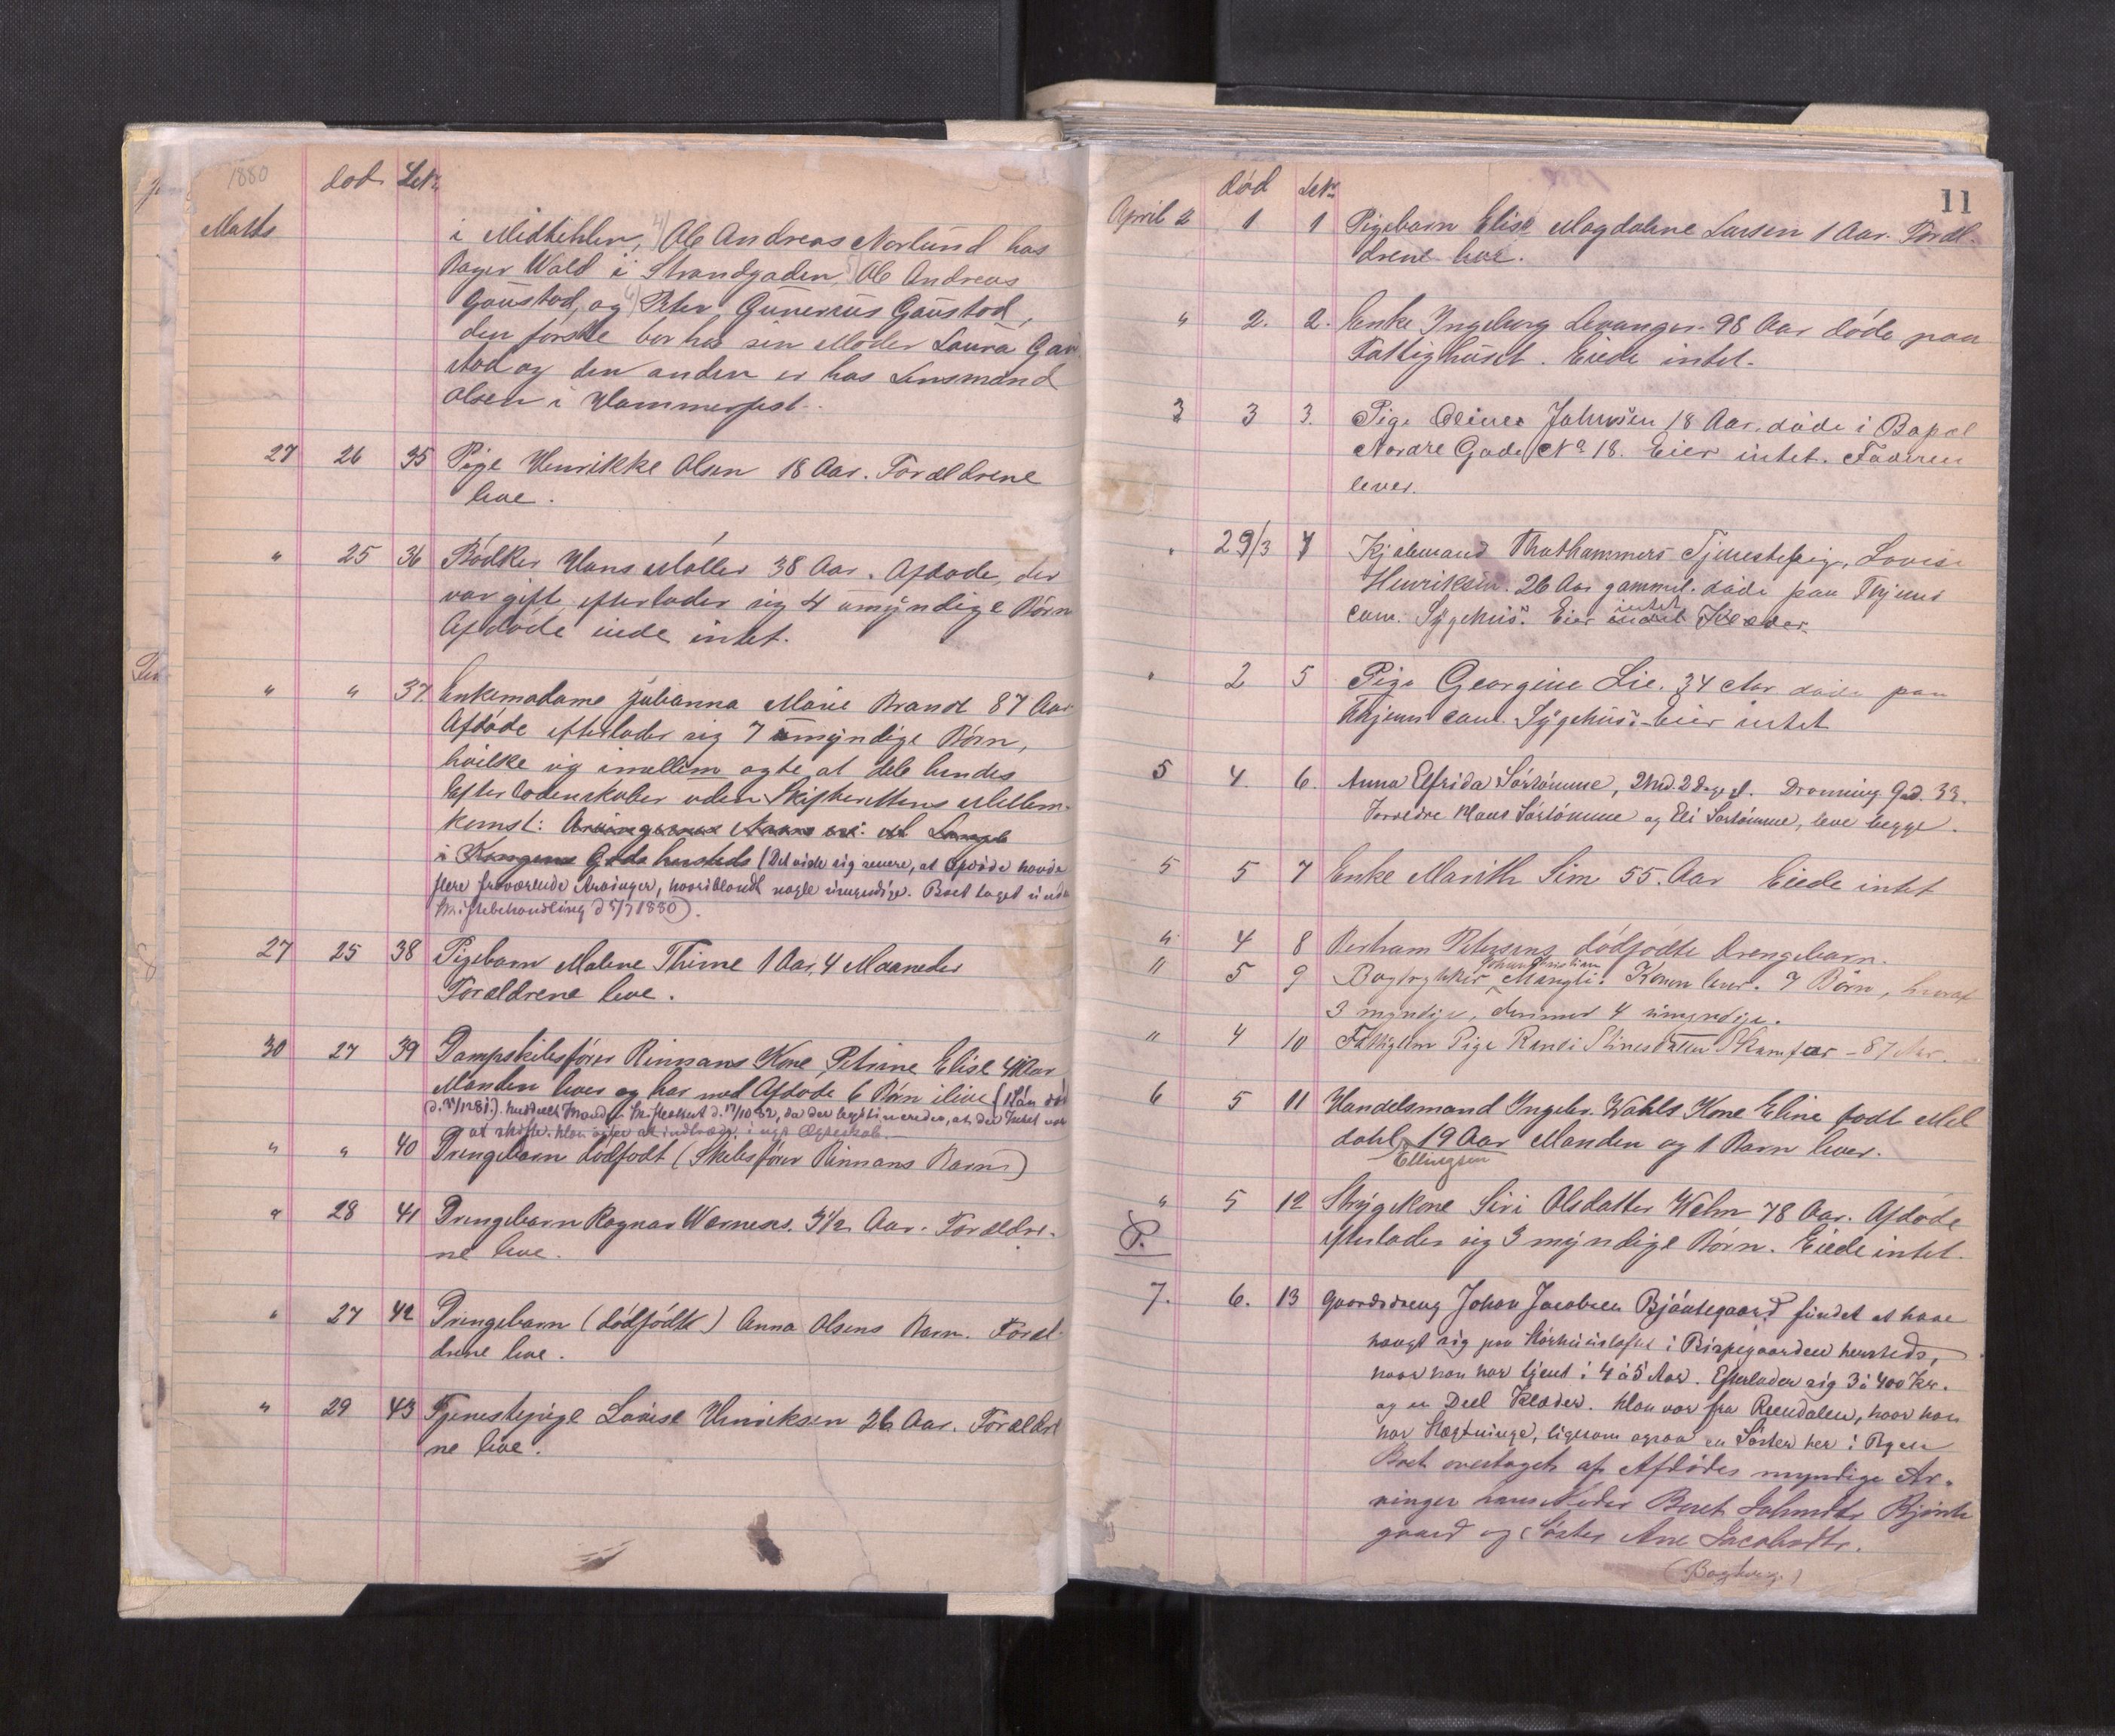 1880
død LNr
Marts
i Midtihlen, 4) Ole Andreas Norlund hos
Bager Wald i Strandgaden, 5) Ole Andreas
Gaustad, og 6) Peter Gunerius Gaustad,
den første bor hos sin Moder Laura Gau
stad og den anden er hos Lensmand
Olsen i Hammerfest.
27 26 35 Pige Henrikke Olsen 18 Aar. Forældrene
leve.
" 25 36 Bødker Hans Møller 38 Aar. Afdøde, der
var gift, efterlader sig 4 umyndige Børn
Afdøde eiede intet.
" " 37. Enkemadame Julianna Marie Brandt 87 Aar
Afdøde efterlader sig 7 myndige Børn,
hvilke sig imellem agte at dele hendes
Efterladenskaber uden Skifterettens Mellem-
komst: Arvingernes Navne
i Kongens Gade hersteds (Det viste sig senere, at Afdøde havde
flere fraværende Arvinger, hvoriblandt nogle umyndige. Boet taget under
Skiftebehandling d 5/7 1880).
27 25 38 Pigebarn Malene Thime 1 Aar, 4 Maaneder
Forældrene leve.
30 27 39 Dampskibsfører Rinnans Kone, Petrine Elise 41 Aar
Manden lever og har med Afdøde 6 Børn ilive (Han død
at skifte. Han agter at indtræde i nyt Ægteskab.
" " 40 Drengebarn dødfødt (Skibsfører Rinnans Barn)
" 28 41 Drengebarn Ragnar Wærnes. 3 1/2 Aar. Forældre-
ne leve.
" 27 42 Drengebarn (dødfødte) Anna Olsens Barn. Foræl-
drene leve.
" 29 43 Tjenestepige Lovise Henriksen 26 Aar. Forældre
ne leve.
11
død LNr
April 2 1 1 Pigebarn Elise Magdalene Larsen 1 Aar. Foræl-
drene leve.
" 2. 2. Enke Ingeborg Levanger. 98 Aar døde paa
Fattighuset. Eiede intet.
3 3 3. Pige Oline Johnsen 18 Aar. døde i
Nordre Gade No 18. Eier intet. Faderen
lever.
" 29/3 4 Kjøbmand Thothammers Tjenestepige, Lovise
Henriksen. 26 Aar gammel. døde paa Thjems
com. Sygehus. Eier intet Klæder
" 2 5 Pige Georgine Lie. 34 Aar døde paa
Thjems com. Sygehus. Eier intet
5 4. 6. Anna Elfrida Sørtømme, 2 Md. 2 Dage gl. Dronning. Gad. 33.
Forældre Hans Sørtømme og Eli Sørtømme, leve begge.
5 5 7 Enke Marith Sim 55. Aar Eiede intet
" 4 8 Bertram Petersens dødfødte Drengebarn.
" 5 9 Bogtrykker Johan Christian Mangli. Konen lever. 7 Børn, hvoraf
3 myndige, derimod 4 umyndige.
" 4 10 Fattiglem Pige Randi Stinesdatter Skamfar - 87 Aar.
6 5 11 Handelsmand Ingebr. Wahls Kone Eline født Mel
dahl 19 Aar Manden og 1 Barn lever.
Ellingsen
" 5 12 Strygekone Siri Olsdatter Wehn 78 Aar. Afdøde
efterlader sig 3 myndige Børn. Eiede intet.
P.
7. 6. 13 Gaardsdreng Johan Jacobsen Bjørkegaard fundet at have
hængt sig paa Størhuusloftet i Bispegaarden hersteds,
hvor han har tjent i 4 à 5 Aar. Efterlader sig 3 à 400 Kr.
og en Deel Klæder. Han var fra Reendalen, hvor han
har Slægtninge, ligesom ogsaa en Søster her i Byen
Boet overtaget af Afdødes myndige Ar-
vinger hans Moder Beret Johnsdtr Bjørke
gaard og Søster Ane Jacobsdtr.